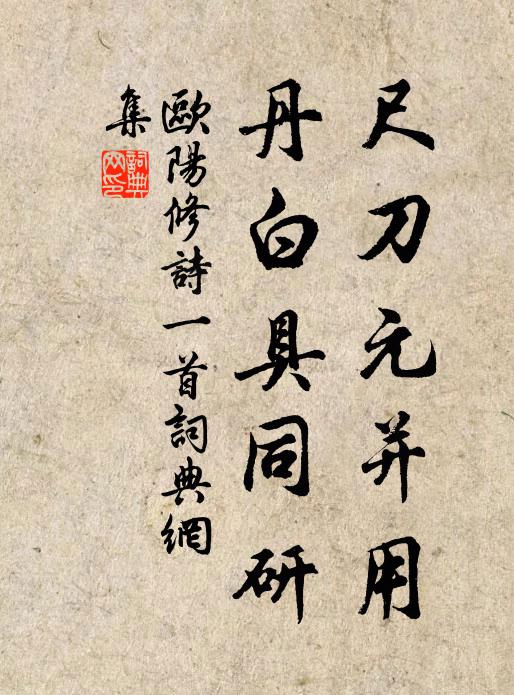 尺刀元并用
丹白具同研
歐陽修詩一首詞典網
集
詞典
网印